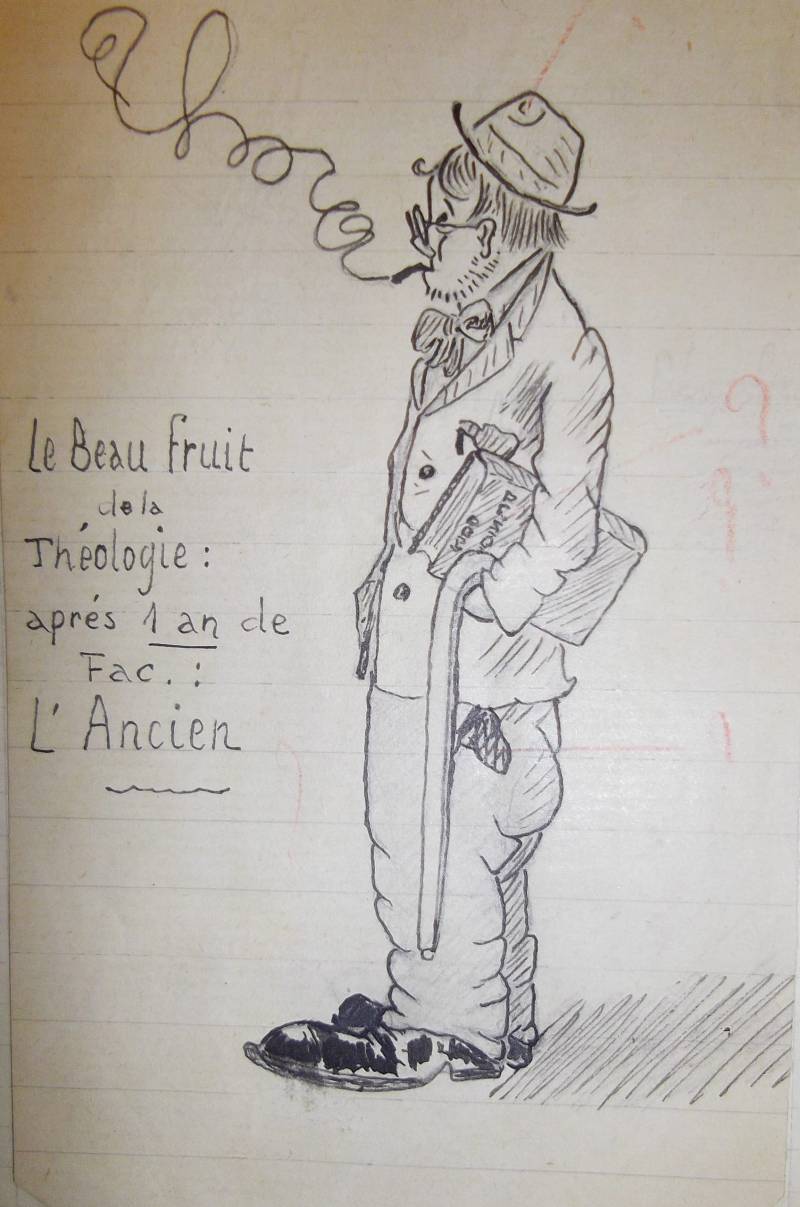 Le Beau fruit
de la
Théologie :
aprés 1 an de
Fac. :
L' Ancien